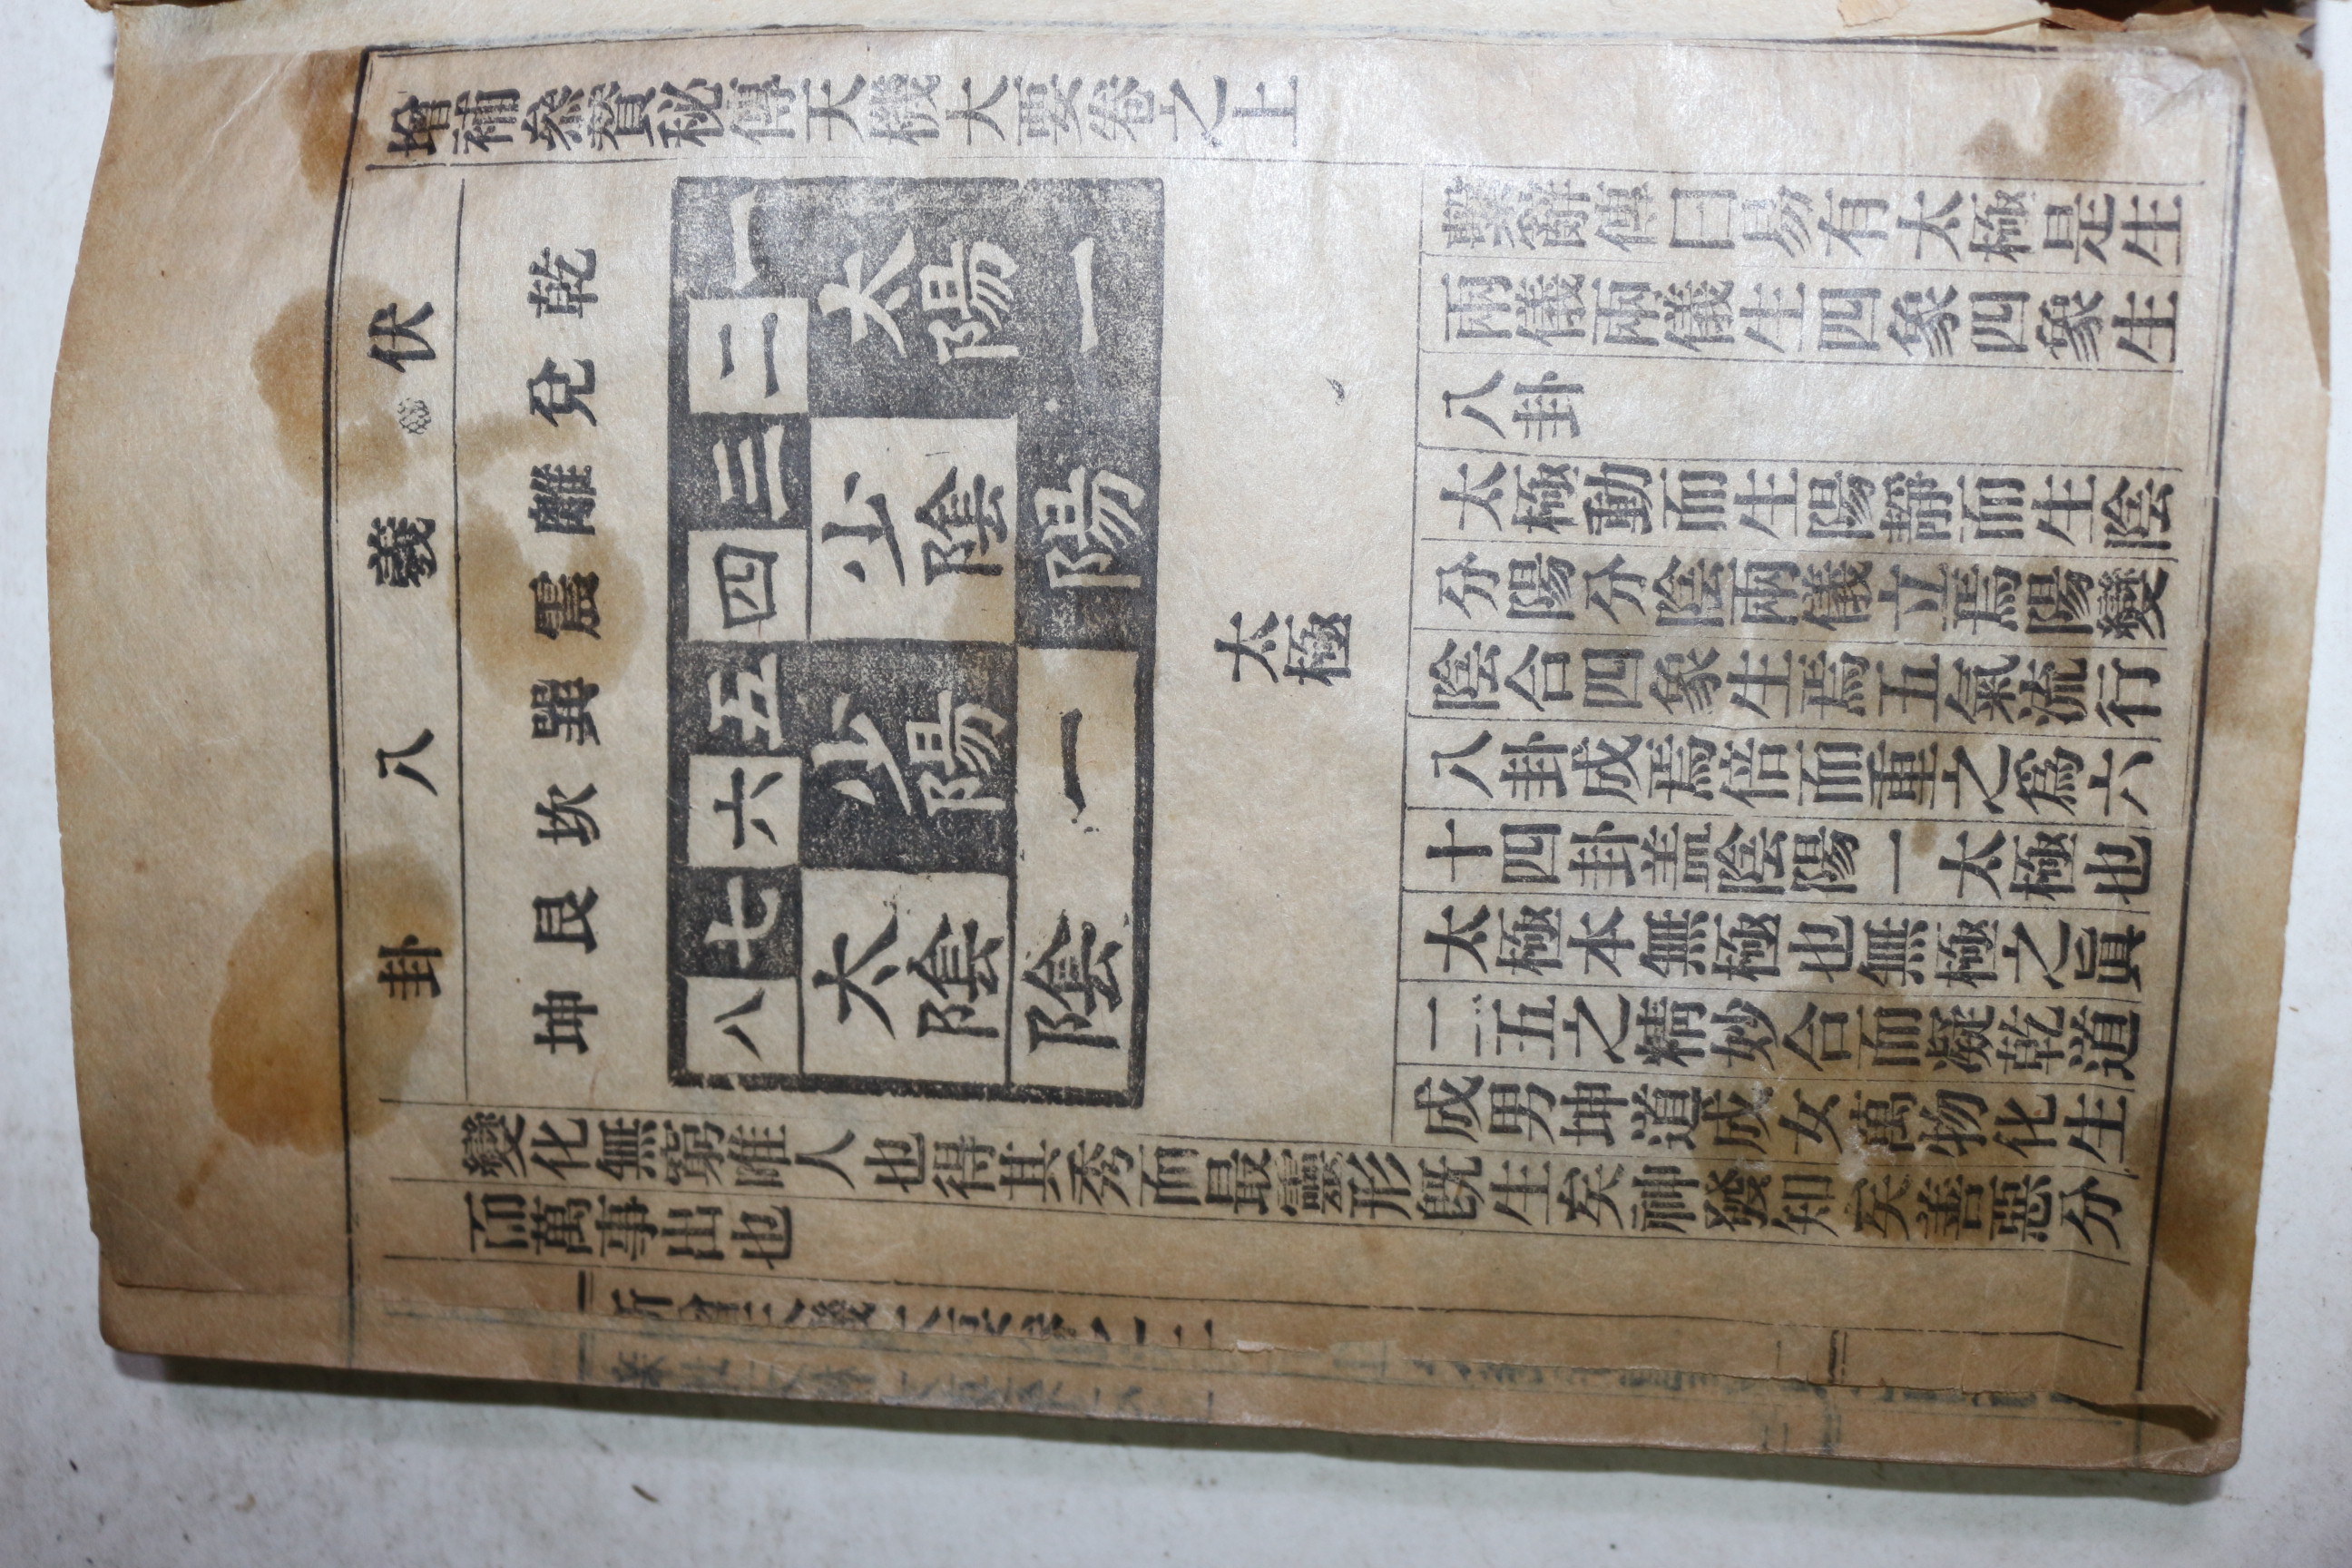 增補參贊秘傳天機大要卷之上
伏羲八卦
乾兌離震巽坎艮坤
一二三四五六七八
太陽
少陰
少陽
太陰
陽一
陰一
太極
繫辭傳曰易有太極是生
兩儀兩儀生四象四象生
八卦
太極動而生陽靜而生陰
分陽分陰兩儀立焉陽變
陰合四象生焉五氣流行
八卦成焉倍而重之爲六
十四卦盖陰陽一太極也
太極本無極也無極之眞
二五之精妙合而凝乾道
成男坤道成女萬物化生
變化無窮唯人也得其秀而最靈形旣生矣神發知矣善惡分
而萬事出也